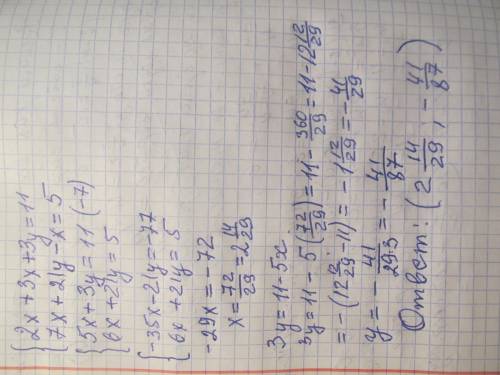 {2x+3x+3y=11
{7x+21y-x=5
{5x+3y=11 (-7)
{6x+21y=5
{-35x-21y=-77
{6x+21y=5
-29x=-72
x=72/29=2 14/29
3y=11-5x
3y=11-5(72/29)=11-360/29=11-12 12/29
=-(12 12/29-11)=-1 12/29=-41/29
y=-41/29·3=-41/87
Ответ: (2 14/29; -41/87)